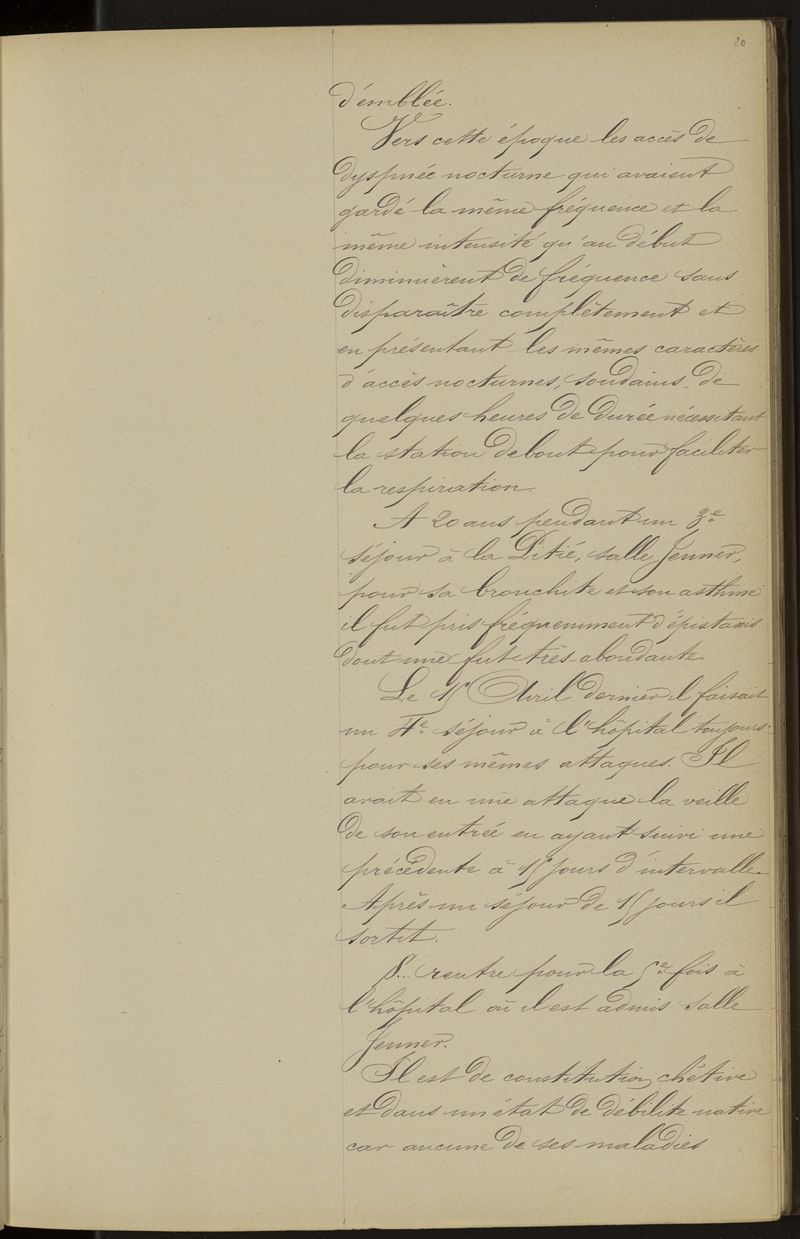 20
d'emblée.
Vers cette époque les accès de
dyspnée nocturne qui avaient
gardé la même fréquence et la
même intensité qu'au début
diminuèrent de fréquence sans
disparaître complètement et
en présentant les mêmes caractères
d'accès nocturnes, soudains, de
quelques heures de durée nécessitant
la station debout pour faciliter
la respiration.
A 20 ans pendant un 3e
séjour à la Pitié, salle Jenner,
pour sa bronchite et son asthme
il fut pris fréquemment d'épistaxis
dont une fut très abondante.
Le 15 Avril dernier il faisait
un 4e séjour à l'hôpital toujours
pour ses mêmes attaques. Il
avait eu une attaque la veille
de son entrée en ayant suivi une
précédente à 15 jours d'intervalle.
Après un séjour de 15 jours il
sortit.
S... rentre pour la 5e fois à
l'hôpital où il est admis salle
Jenner.
Il est de constitution chétive
et dans un état de débilité native
car aucune de ses maladies